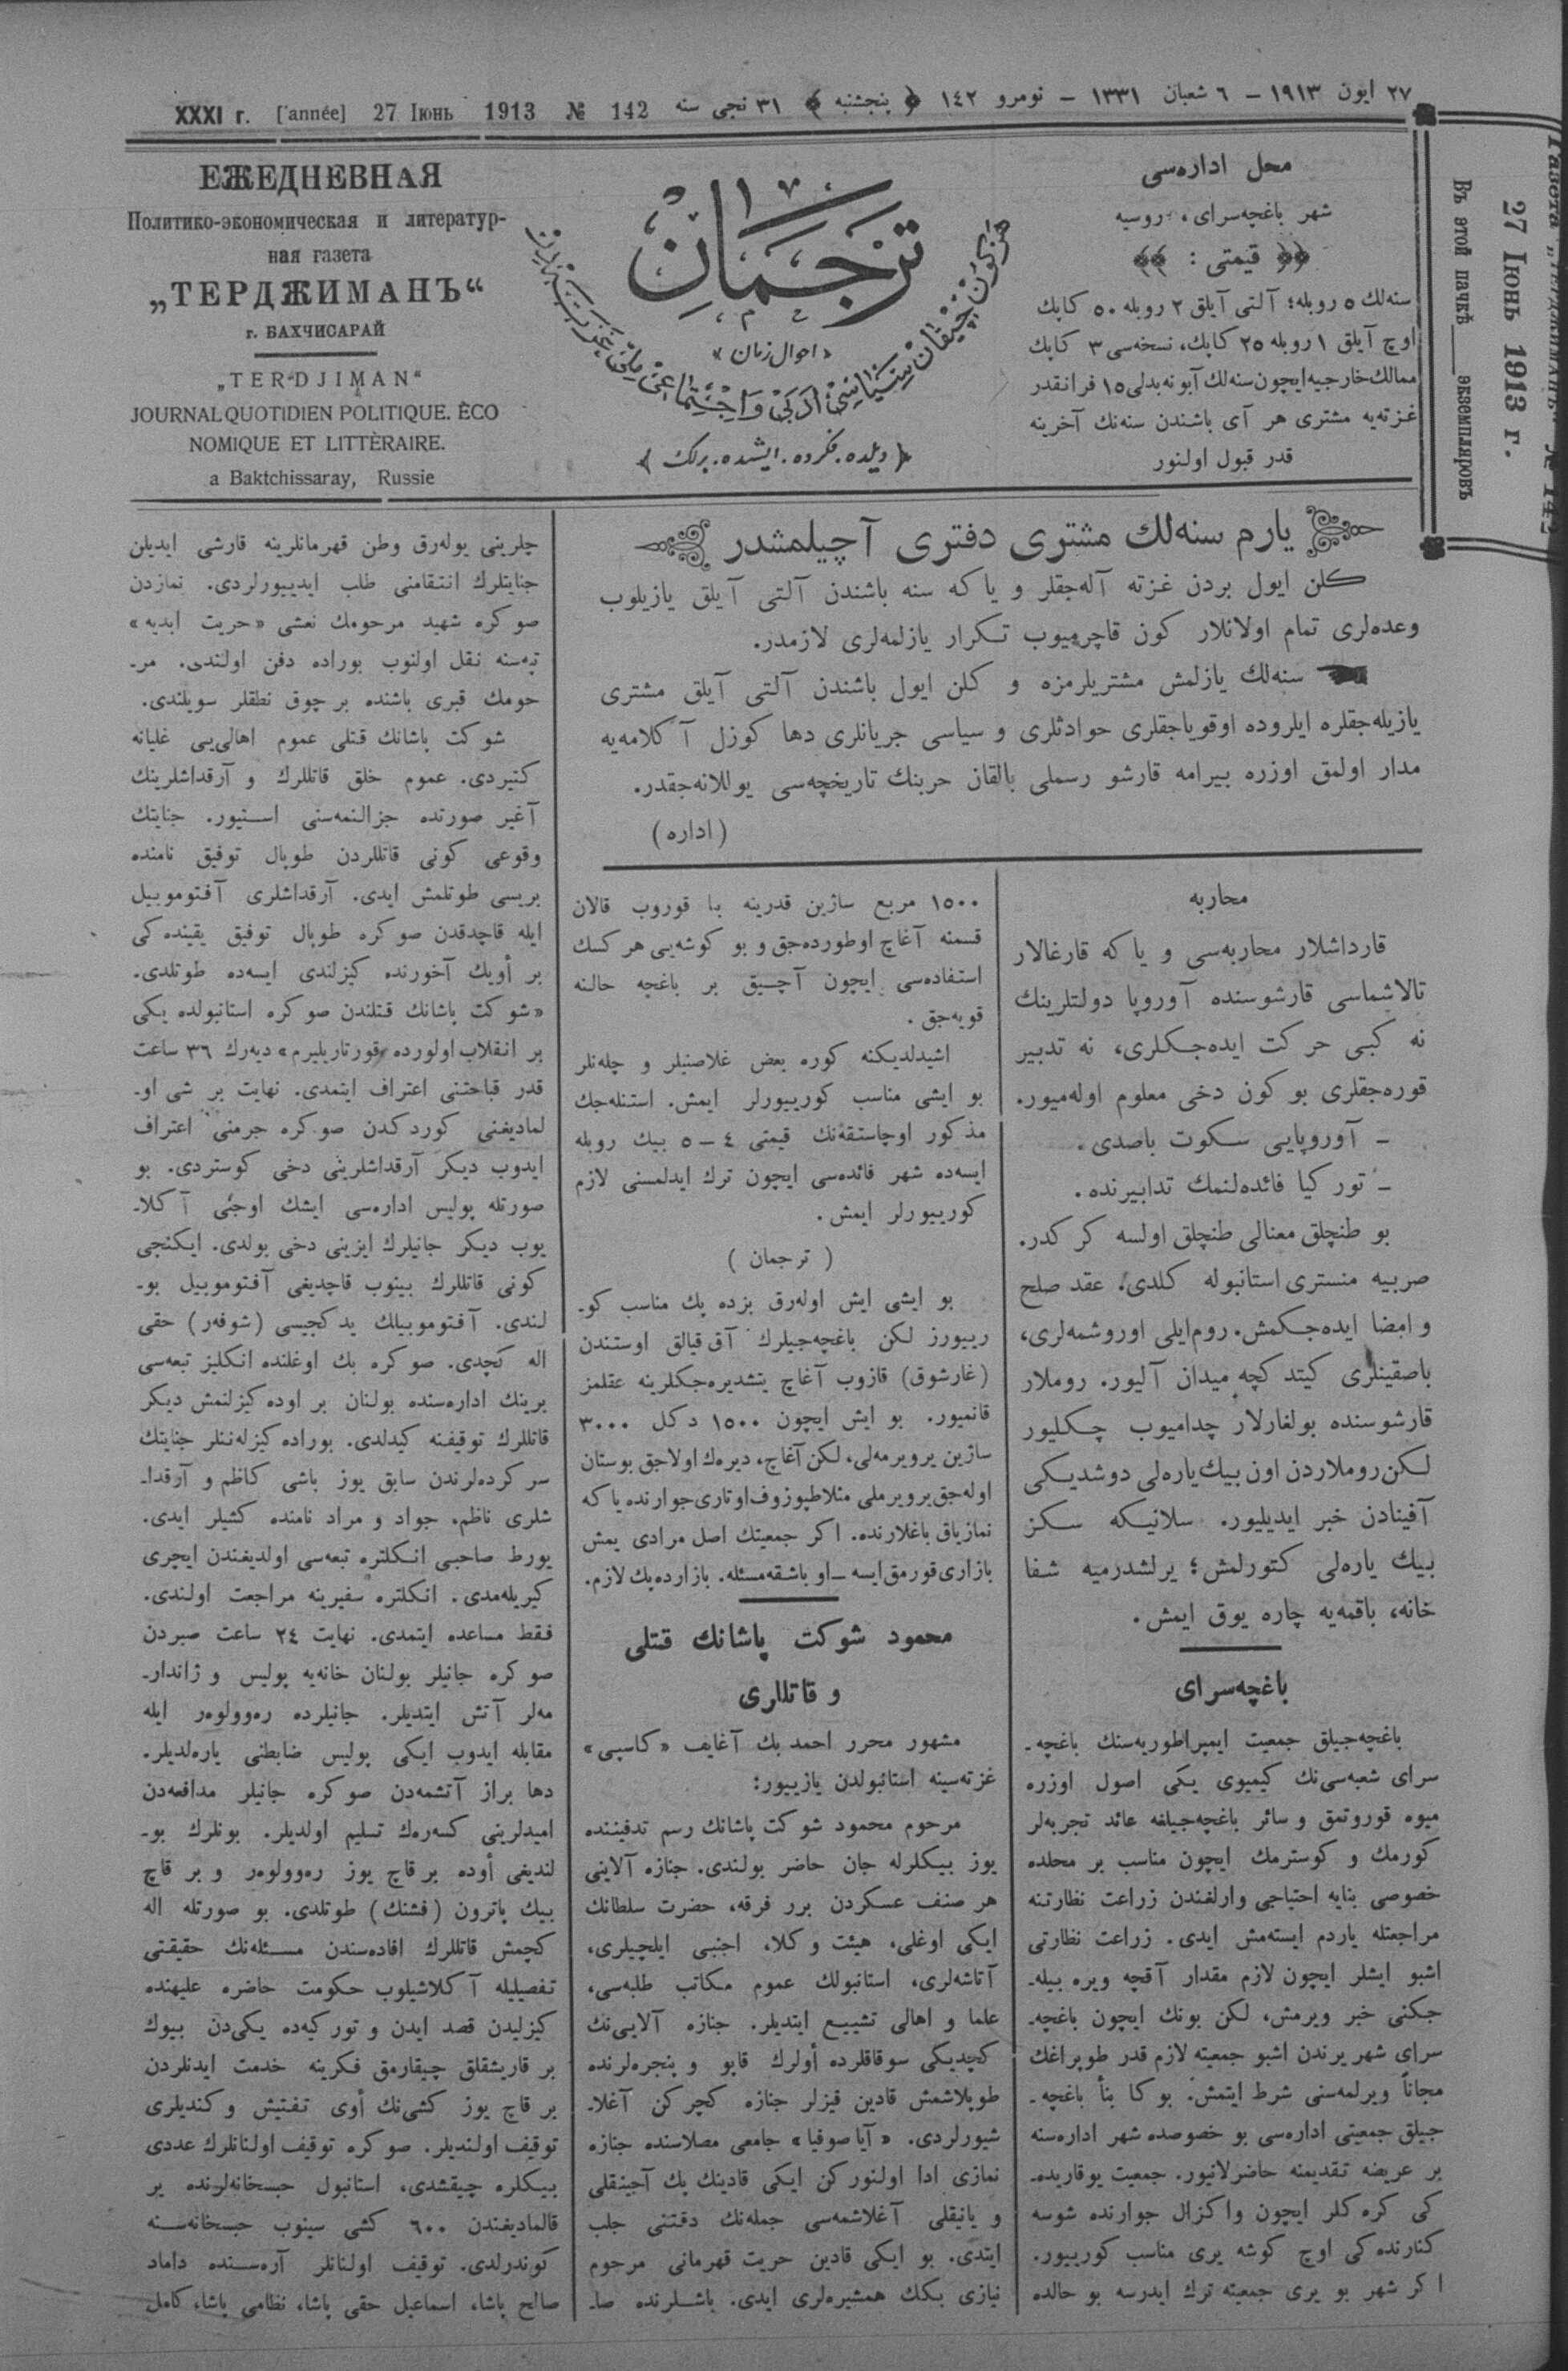 ٢٧ ایون ١٩١٣ – ٦ شعبان ١٣٣١ – نومرو ١٤٢ ﴿ پنجشنبه ﴾ ٣١ نجی سنه
XXXI г. [année] 27 Iюнь 1913 № 142
ЕЖЕДНЕВНАЯ
Политико-экономическая и литератур-
ная газета
„ТЕРДЖИМАНЪ“
г. БАХЧИСАРАЙ
„TERDJIMAN“
JOURNAL QUOTIDIEN POLITIQUE. ÈCO
NOMIQUE ET LITTÈRAIRE.
a Baktchissaray, Russie
ترجمان
«احوال زمان»
هر کون چیقان سیاسی ادبی و اجتماعی ملی غزته‌در
﴿ دیلده. فکرده. ایشده. برلك ﴾
محل اداره‌سی
شهر باغچه‌سرای، روسیه
قیمتی :
سنه‌لك ٥ روبله؛ آلتی آیلق ٢ روبله ٥٠ کاپك
اوچ آیلق ١ روبله ٢٥ کاپك، نسخه‌سی ٣ کاپك
ممالك خارجیه ایچون سنه‌لك آبونه بدلی ١٥ فرانقدر
غزته‌یه مشتری هر آی باشندن سنه‌نك آخرینه
قدر قبول اولنور
Газета „ТЕРДЖИМАНЪ“ № 142
27 Iюнь 1913 г.
Въ этой пачкѣ ____ экземпляровъ
یارم سنه‌لك مشتری دفتری آچیلمشدر
کلن ایول بردن غزته آله‌جقلر و یا که سنه باشندن آلتی آیلق یازیلوب
وعده‌لری تمام اولانلار کون قاچرمیوب تکرار یازلمه‌لری لازمدر.
سنه‌لك یازلمش مشتریلرمزه و کلن ایول باشندن آلتی آیلق مشتری
یازیله‌جقلره ایلروده اوقویاجقلری حوادثلری و سیاسی جریانلری دها کوزل آکلامه‌یه
مدار اولمق اوزره بیرامه قارشو رسملی بالقان حربنك تاریخچه‌سی یوللانه‌جقدر.
(اداره)
محاربه
قارداشلار محاربه‌سی و یا که قارغالار
تالاشماسی قارشوسنده آوروپا دولتلرینك
نه کبی حرکت ایده‌جکلری، نه تدبیر
قوره‌جقلری بو کون دخی معلوم اوله‌میور.
– آوروپایی سکوت باصدی.
– تورکیا فائده‌لنمك تدابیرنده.
بو طنچلق معنالی طنچلق اولسه کرکدر.
صربیه منستری استانبوله کلدی. عقد صلح
و امضا ایده‌جکمش. روم‌ایلی اوروشمه‌لری،
باصقینلری کیتدکچه میدان آلیور. روملار
قارشوسنده بولغارلار چدامیوب چکلیور
لکن روملاردن اون بیك یاره‌لی دوشدیکی
آفینادن خبر ایدیلیور. سلانیکه سکز
بیك یاره‌لی کتورلمش؛ یرلشدرمیه شفا
خانه، باقمه‌یه چاره یوق ایمش.
باغچه‌سرای
باغچه‌جیلق جمعیت ایمپراطوریه‌سنك باغچه‌ـ
سرای شعبه‌سی‌نك کیمیوی یکی اصول اوزره
میوه قوروتمق و سائر باغچه‌جیلغه عائد تجربه‌لر
کورمك و کوسترمك ایچون مناسب بر محلده
خصوصی بنایه احتیاجی وارلغندن زراعت نظارتنه
مراجعتله یاردم ایسته‌مش ایدی. زراعت نظارتی
اشبو ایشلر ایچون لازم مقدار آقچه ویره بیله‌ـ
جکنی خبر ویرمش، لکن بونك ایچون باغچه‌ـ
سرای شهر یرندن اشبو جمعیته لازم قدر طوپراغك
مجاناً ویرلمه‌سنی شرط ایتمش. بوکا بناً باغچه‌ـ
جیلق جمعیتی اداره‌سی بو خصوصده شهر اداره‌سنه
بر عریضه تقدیمنه حاضرلانیور. جمعیت یوقاریده‌ـ
کی کره‌کلر ایچون واکزال جوارنده شوسه
کنارنده‌کی اوچ کوشه یری مناسب کورییور.
اکر شهر بو یری جمعیته ترك ایدرسه بو حالده
١٥٠٠ مربع ساژین قدرینه با قوروب قالان
قسمنه آغاچ اوطورده‌جق و بو کوشه‌یی هر کسك
استفاده‌سی ایچون آچیق بر باغچه حالنه
قویه‌جق.
اشیدلدیکنه کوره بعض غلاصنیلر و چله‌نلر
بو ایشی مناسب کورییورلر ایمش. استنله‌جك
مذکور اوچاستقه‌نك قیمتی ٤ – ٥ بیك روبله
ایسه‌ده شهر فائده‌سی ایچون ترك ایدلمسنی لازم
کورییورلر ایمش.
( ترجمان )
بو ایشی ایش اوله‌رق بزده پك مناسب کوـ
رییورز لکن باغچه‌جیلرك آق قیالق اوستندن
(غارشوق) قازوب آغاچ یتشدیره‌جکلرینه عقلمز
قانمیور. بو ایش ایچون ١٥٠٠ دکل ٣٠٠٠
ساژین یر ویرمه‌لی، لکن آغاچ، دیره‌ك اولاجق بوستان
اوله‌جق یر ویرملی مثلا طپوزوف اوتاری جوارنده یا که
نمازیاق باغلارنده. اکر جمعیتك اصل مرادی یمش
بازاری قورمق ایسه – او باشقه مسئله. بازارده پك لازم.
محمود شوکت پاشانك قتلی
و قاتللری
مشهور محرر احمد بك آغایف «کاسپی»
غزته‌سینه استانبولدن یازییور:
مرحوم محمود شوکت پاشانك رسم تدفیننده
یوز بیکلرله جان حاضر بولندی. جنازه آلاینی
هر صنف عسکردن برر فرقه، حضرت سلطانك
ایکی اوغلی، هیئت وکلا، اجنبی ایلچیلری،
آتاشه‌لری، استانبولك عموم مکاتب طلبه‌سی،
علما و اهالی تشییع ایتدیلر. جنازه آلایی‌نك
کچدیکی سوقاقلرده أولرك قاپو و پنجره‌لرنده
طوپلاشمش قادین قیزلر جنازه کچرکن آغلاـ
شیورلردی. «آیا صوفیا» جامعی مصلاسنده جنازه
نمازی ادا اولنورکن ایکی قادینك پك آجینقلی
و یانیقلی آغلاشمه‌سی جمله‌نك دقتنی جلب
ایتدی. بو ایکی قادین حریت قهرمانی مرحوم
نیازی بکك همشیره‌لری ایدی. باشلرنده صاـ
چلرینی یوله‌رق وطن قهرمانلرینه قارشی ایدیلن
جنایتلرك انتقامنی طلب ایدییورلردی. نمازدن
صوکره شهید مرحومك نعشی «حریت ابدیه»
تپه‌سنه نقل اولنوب بوراده دفن اولندی. مرـ
حومك قبری باشنده بر چوق نطقلر سویلندی.
شوکت پاشانك قتلی عموم اهالی‌یی غلیانه
کتیردی. عموم خلق قاتللرك و آرقداشلرینك
آغیر صورتده جزالنمه‌سنی استیور. جنایتك
وقوعی کونی قاتللردن طوپال توفیق نامنده
بریسی طوتلمش ایدی. آرقداشلری آفتوموبیل
ایله قاچدقدن صوکره طوپال توفیق یقینده‌کی
بر أویك آخورنده کیزلندی ایسه‌ده طوتلدی.
«شوکت پاشانك قتلندن صوکره استانبولده یکی
بر انقلاب اولورده قورتاریلیرم» دیه‌رك ٣٦ ساعت
قدر قباحتنی اعتراف ایتمدی. نهایت بر شی اوـ
لمادیغنی کوردکدن صوکره جرمنی اعتراف
ایدوب دیکر آرقداشلرینی دخی کوستردی. بو
صورتله پولیس اداره‌سی ایشك اوجنی آکلاـ
یوب دیکر جانیلرك ایزینی دخی بولدی. ایکنجی
کونی قاتللرك بینوب قاچدیغی آفتوموبیل بوـ
لندی. آفتوموبیلك یدکجیسی (شوفه‌ر) حقی
اله کچدی. صوکره بك اوغلنده انکلیز تبعه‌سی
برینك اداره‌سنده بولنان بر اوده کیزلنمش دیکر
قاتللرك توقیفنه کیدلدی. بوراده کیزله‌ننلر جنایتك
سرکرده‌لرندن سابق یوز باشی کاظم و آرقداـ
شلری ناظم، جواد و مراد نامنده کشیلر ایدی.
یورط صاحبی انکلتره تبعه‌سی اولدیغندن ایچری
کیریله‌مدی. انکلتره سفیرینه مراجعت اولندی.
فقط مساعده ایتمدی. نهایت ٢٤ ساعت صبردن
صوکره جانیلر بولنان خانه‌یه پولیس و ژاندارـ
مه‌لر آتش ایتدیلر. جانیلرده ره‌وولوه‌ر ایله
مقابله ایدوب ایکی پولیس ضابطنی یاره‌لدیلر.
دها براز آتشمه‌دن صوکره جانیلر مدافعه‌دن
امیدلرینی کسه‌رك تسلیم اولدیلر. بونلرك بوـ
لندیغی أوده بر قاچ یوز ره‌وولوه‌ر و بر قاچ
بیك پاترون (فشنك) طوتلدی. بو صورتله اله
کچمش قاتللرك افاده‌سندن مسئله‌نك حقیقتی
تفصیلیله آکلاشیلوب حکومت حاضره علیهنده
کیزلیدن قصد ایدن و تورکیه‌ده یکی‌دن بیوك
بر قاریشقلق چیقارمق فکرینه خدمت ایدنلردن
بر قاچ یوز کشی‌نك أوی تفتیش و کندیلری
توقیف اولندیلر. صوکره توقیف اولنانلرك عددی
بیکلره چیقشدی، استانبول حبسخانه‌لرنده یر
قالمادیغندن ٦٠٠ کشی سینوب حبسخانه‌سنه
کوندرلدی. توقیف اولنانلر آره‌سنده داماد
صالح پاشا، اسماعیل حقی پاشا، نظامی پاشا، کامل